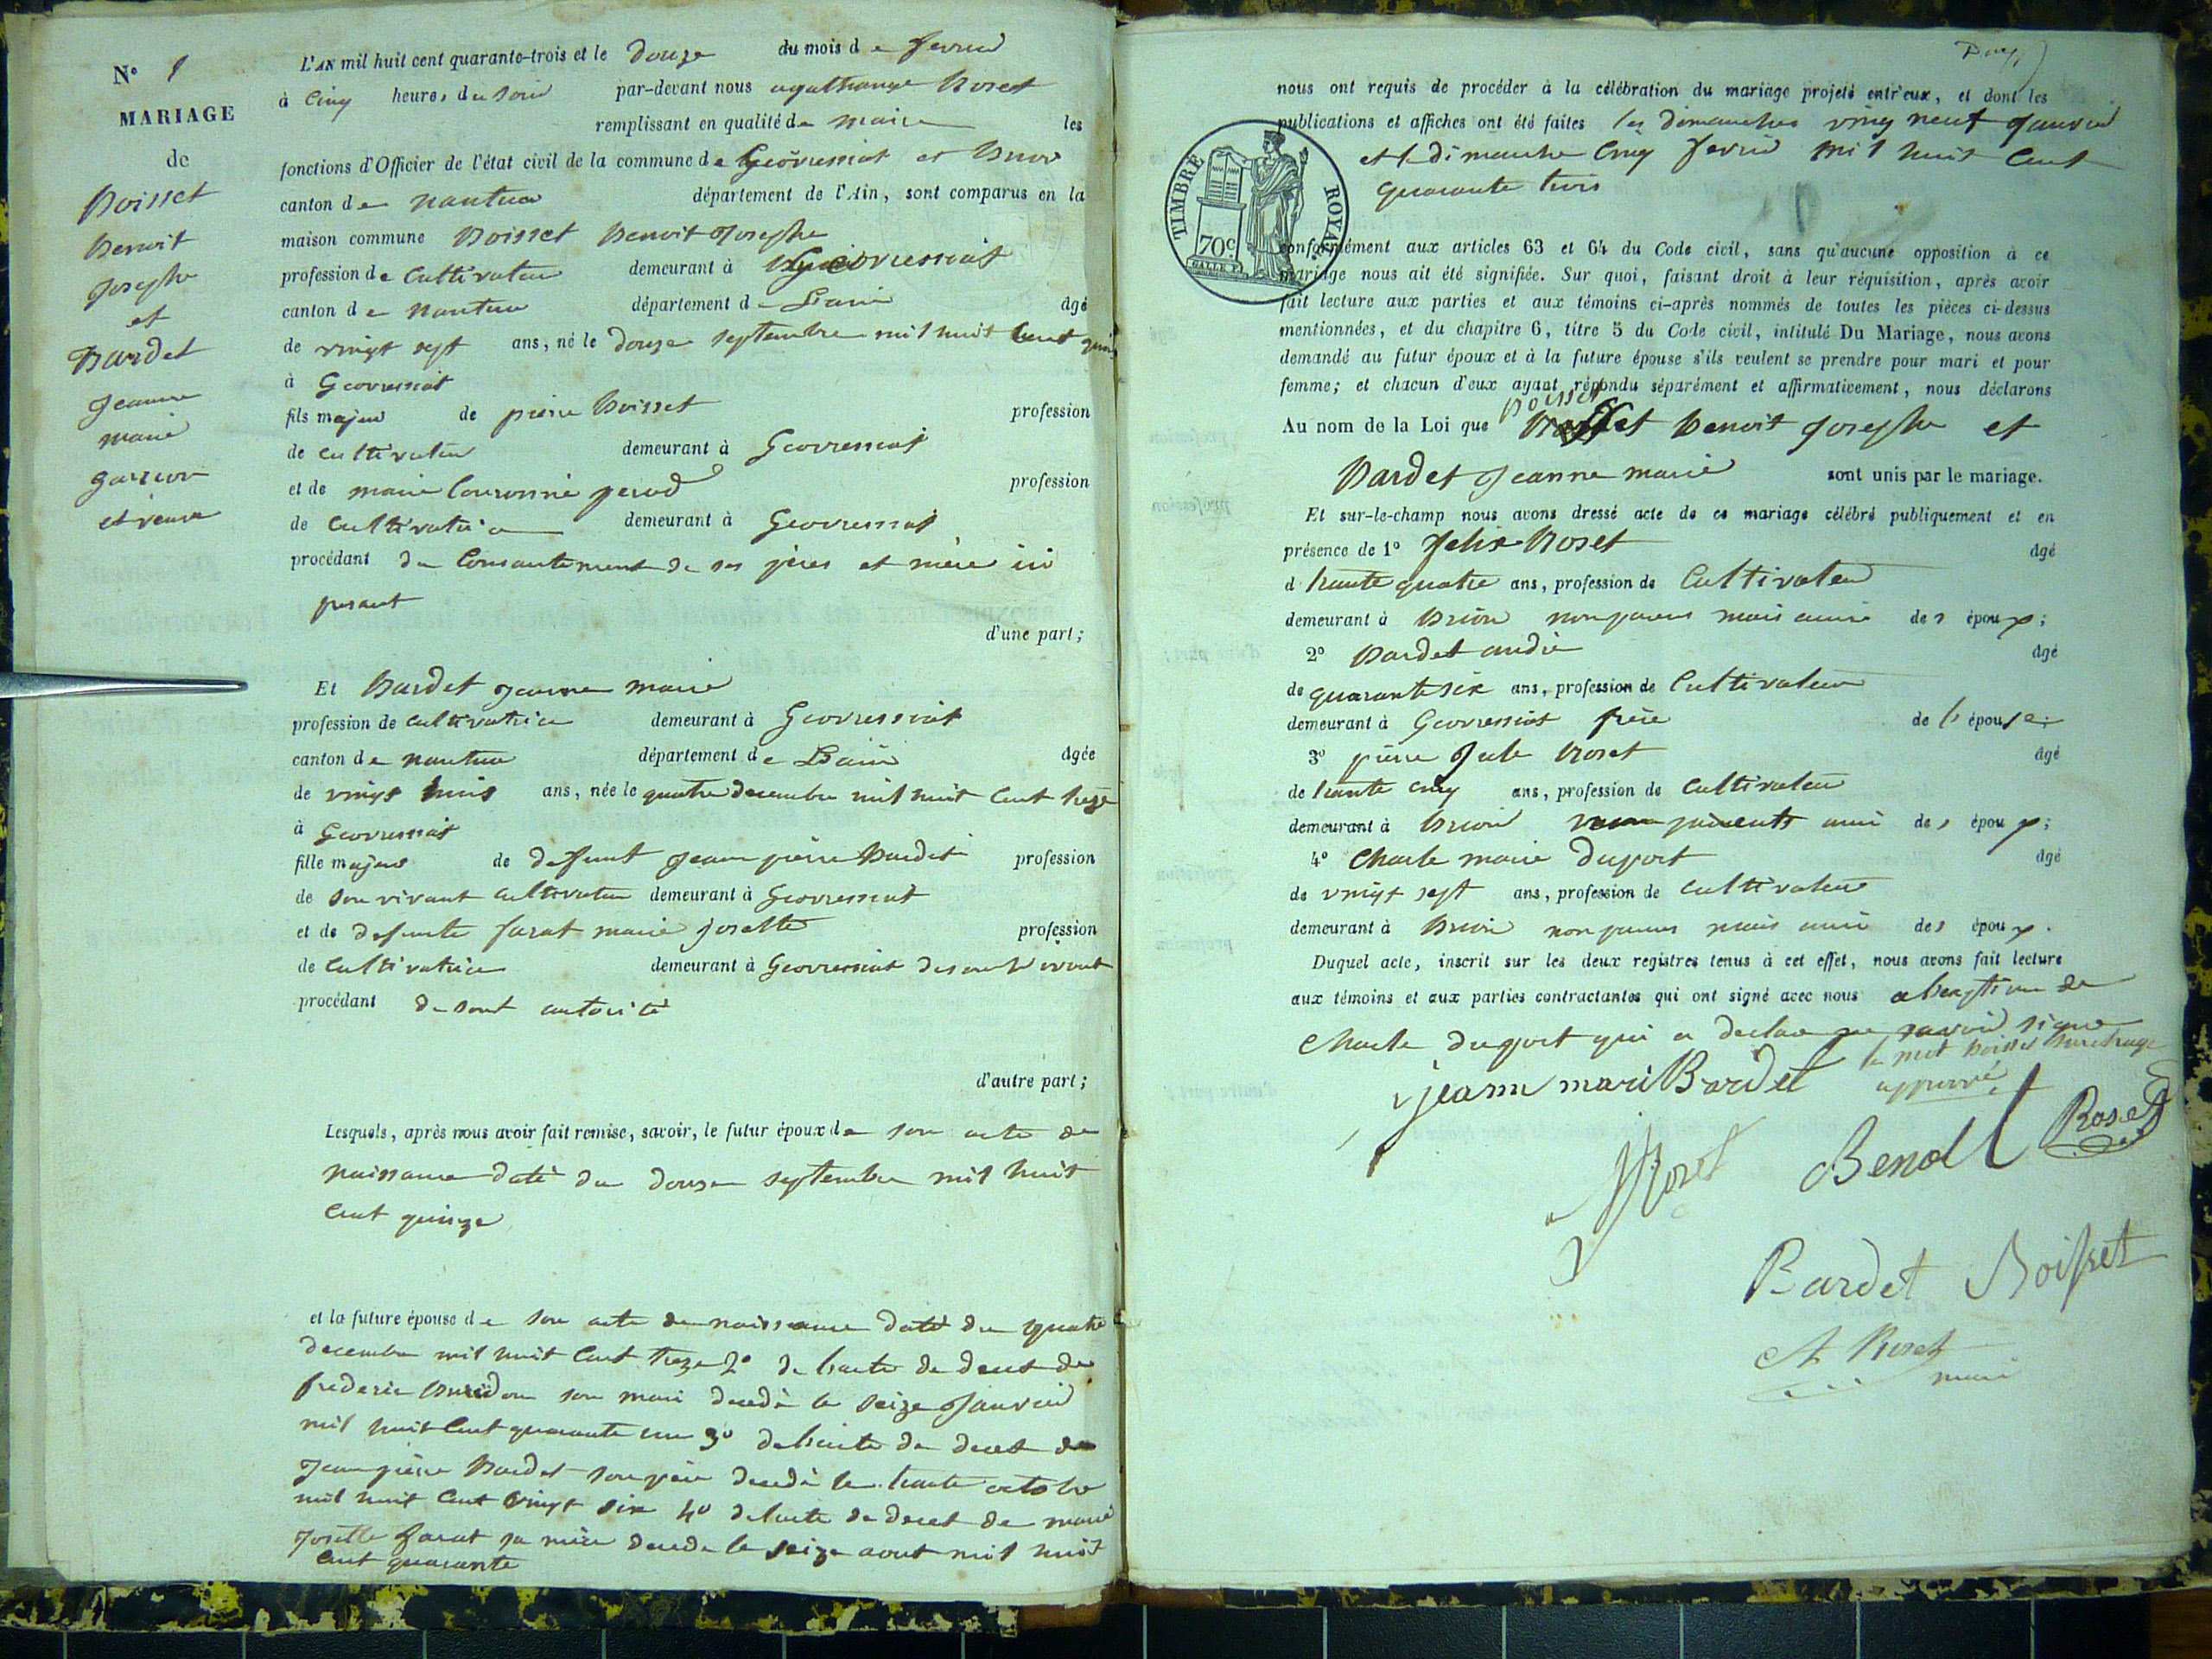 N° 1
MARIAGE
de
Boisset
Benoit
Josephe
et
Bardet
Jeanne
marie
garcon
et veuve
L'AN mil huit cent quarante-trois et le douze du mois de fevrier
à cinq heures du soir par-devant nous agathange Roset
remplissant en qualité de maire les
fonctions d'Officier de l'état civil de la commune de Geovressiat et Brion
canton de nantua département de l'Ain, sont comparus en la
maison commune Boisset Benoit Josephe
profession de cultivateur demeurant à Geovressiat
canton de nantua département de Lain âgé
de vingt sept ans, né le douze septembre mil huit cent quinze
à Geovressiat
fils majeur de pierre Boisset profession
de cultivateur demeurant à Geovressiat
et de marie profession
de cultivatrice demeurant à Geovressiat
procédant du consantement de ses pères et mère ici
presant
d'une part;
Et Bardet Jeanne marie
profession de cultivatrice demeurant à Geovressiat
canton de nantua département de Lain âgée
de vingt ans, née le quatre decembre mil huit cent treze
à Geovressiat
fille majeure de defunt Jean pierre Bardet profession
de son vivant cultivateur demeurant à Geovressiat
et de defunte farat marie Josette profession
de cultivatrice demeurant à Geovressiat de son vivant
procédant de sont autorité
d'autre part;
Lesquels, après nous avoir fait remise, savoir, le futur époux de son acte de
naissance daté du douze septembre mil huit
cent quinze
et la future épouse de son acte de naissance daté du quatre
decembre mil huit cent treze 2° de lacte de deces de
frederic son mari decedé le seize Janvier
mil huit cent quarante un 3° de lacte de deces de
Jean pierre Bardet son père decedé le trante octobre
mil huit cent vingt six 4° de lacte de deces de marie
Josette farat sa mère decede le seize aout mil huit
cent quarante
nous ont requis de procéder à la célébration du mariage projeté entr'eux, et dont les
publications et affiches ont été faites les dimanches vingt neuf Janvier
et le dimanche cinq fevrier mil huit cent
quarante trois
TIMBRE ROYAL
70c
conformément aux articles 63 et 64 du Code civil, sans qu'aucune opposition à ce
mariage nous ait été signifiée. Sur quoi, faisant droit à leur réquisition, après avoir
fait lecture aux parties et aux témoins ci-après nommés de toutes les pièces ci-dessus
mentionnées, et du chapitre 6, titre 5 du Code civil, intitulé Du Mariage, nous avons
demandé au futur époux et à la future épouse s'ils veulent se prendre pour mari et pour
femme; et chacun d'eux ayant répondu séparément et affirmativement, nous déclarons
Au nom de la Loi que Boisset Benoit Josephe et
Bardet Jeanne marie sont unis par le mariage.
Et sur-le-champ nous avons dressé acte de ce mariage célébré publiquement et en
présence de 1° felix Roset âgé
de trante quatre ans, profession de cultivateur
demeurant à Brion non parens mais ami des époux;
2° Bardet andré âgé
de quarante six ans, profession de cultivateur
demeurant à Geovressiat frère de l'épouse;
3° pierre Jule Roset âgé
de trante cinq ans, profession de cultivateur
demeurant à Brion non parents ami des époux;
4° Charle marie Duport âgé
de vingt sept ans, profession de cultivateur
demeurant à Brion non parens mais ami des époux.
Duquel acte, inscrit sur les deux registres tenus à cet effet, nous avons fait lecture
aux témoins et aux parties contractantes qui ont signé avec nous
Charle Duport qui a declaré ne savoir signer
le mot Boisset surchargé
approuvé
jeann mari Bardet
Roset
Roset
Benoit
Bardet Boisset
A Roset
maire